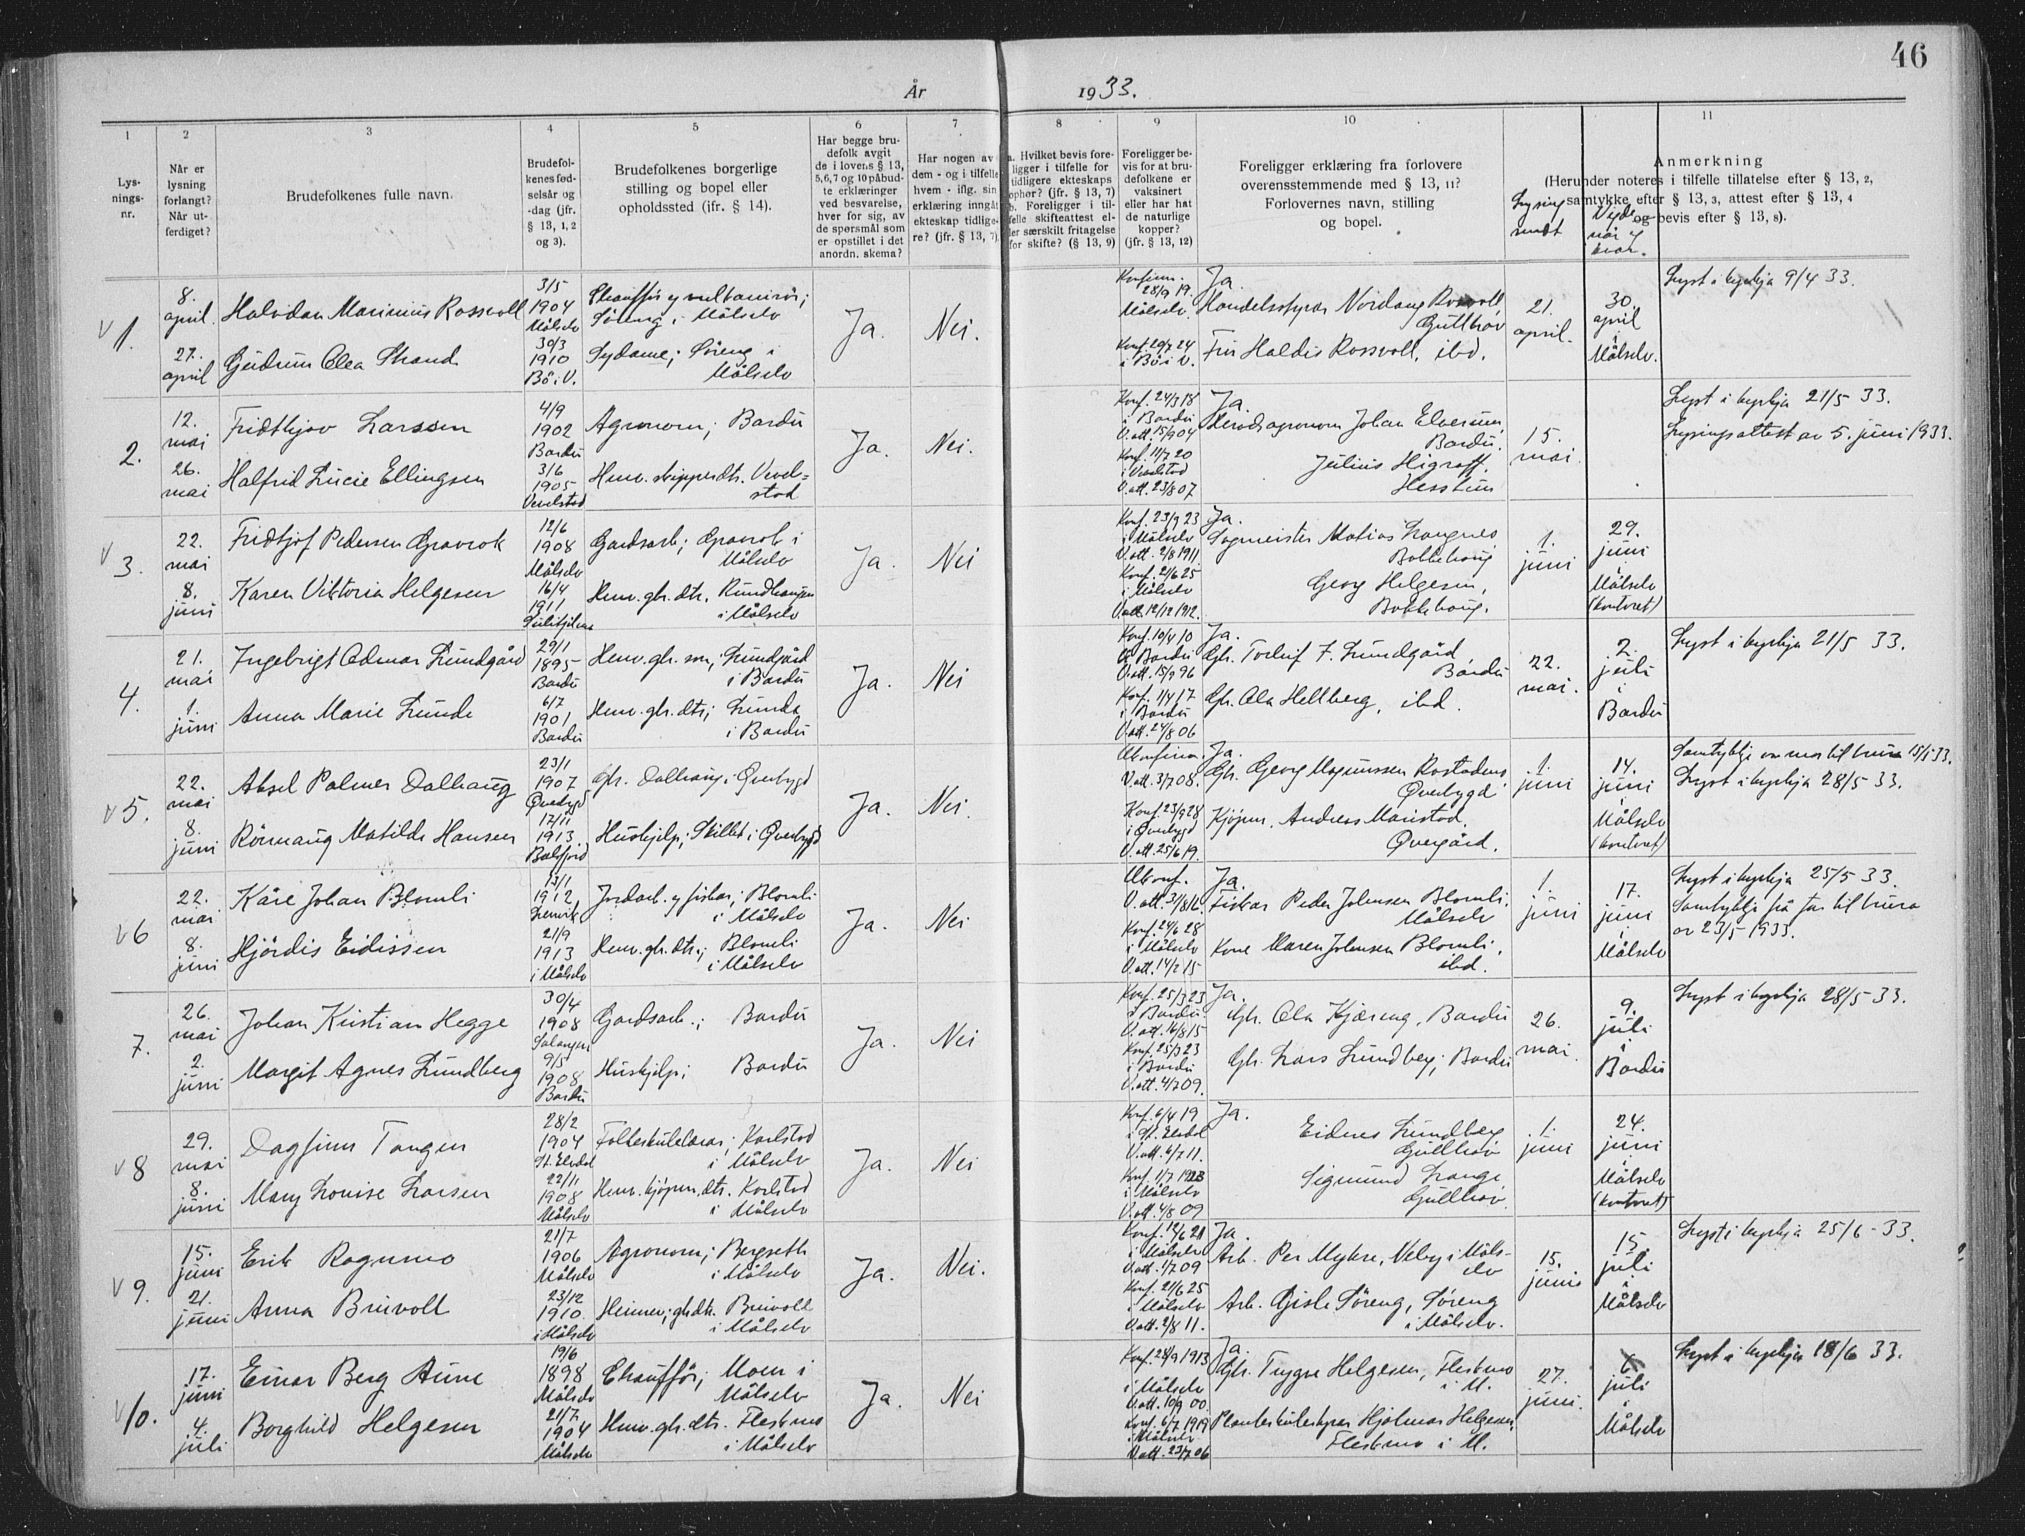 46
År 1933.
1
2
3
4
5
6
7
8
9
10
11
Lys-
nings-
nr.
Når er
lysning
forlangt?
Når ut-
ferdiget?
Brudefolkenes fulle navn.
Brudefol-
kenes fød-
selsår og
-dag (jfr.
§ 13, 1, 2
og 3).
Brudefolkenes borgerlige
stilling og bopel eller
opholdssted (ifr. § 14).
Har begge bru-
defolk avgit
de i lovens § 13,
5,6,7 og 10 påbud-
te erklæringer
ved besvarelse,
hver for sig, av
de spørsmål som
er opstillet i det
anordn. skema?
Har nogen av
dem - og i tilfelle
hvem - iflg. sin
erklæring inngåt
ekteskap tidlige-
re? (jfr. § 13, 7)
a. Hvilket bevis fore-
ligger i tilfelle for
tidligere ekteskaps
ophør? (jfr. § 13, 7)
b. Foreligger i til-
felle skifteattest el-
ler særskilt fritagelse
for skifte? (§ 13, 9)
Foreligger be-
vis for at bru-
defolkene er
vaksinert
eller har hat
de naturlige
kopper?
(jfr. § 13, 12)
Foreligger erklæring fra forlovere
overensstemmende med § 13, 11?
Forlovernes navn, stilling
og bopel.
Lysing
sendt
Vigde
når og
hvor.
Anmerkning
(Herunder noteres i tilfelle tillatelse efter § 13, 2,
samtykke efter § 13, 3, attest efter § 13, 4
og bevis efter § 13, 8).
v 1.
8.
april.
27.
april
Halvdan Marinius Rossvoll
Gudrun Olea Strand
3/5
1904
Målselv
30/3
1910
Bø i V.
Chauffør og vulkanisør;
Søreng i Målselv
Sydame; Søreng i
Målselv
Ja.
Nei.
Konfirm.
28/9 19.
Målselv.
Konf. 20/7 24
i Bø i V.
Ja.
Handelsstyrar Nordang Rossvoll,
Gullhav
Fru Haldis Rossvoll, ibd.
21.
april.
30.
april
i
Målselv.
Lyst i kyrkja 9/4 33.
2.
12.
mai
26.
mai
Fridthjov Larssen
Halfrid Lucie Ellingsen
4/9
1902
Bardu
3/6
1905
Vevelstad
Agronom; Bardu
Hmv. skipperdtr. Vevel-
stad
Ja.
Nei.
Konf. 24/3 18
i Bardu
V.att. 15/9 04
Konf. 11/7 20
i Vevelstad
V.att. 23/8 07
Ja.
Herredsagronom Johan Elverum,
Bardu
Julius Higraff.
Hesstun
15.
mai
Lyst i kyrkja 21/5 33.
Lysingsattest av 5. juni 1933.
v 3.
22.
mai
8.
juni
Fridtjof Pedersen Gravrok
Karen Viktoria Helgesen
12/6
1908
Målselv
16/4
1911
Sulitjelma
Gardsarb; Gravrok i
Målselv
Hmv. gbr. dtr. Rundhaugen
i Målselv
Ja.
Nei
Konf. 23/9 23
i Målselv
V.att. 2/8 1911
Konf. 21/6 25
i Målselv
V.att. 12/12 1912.
Ja.
Sagmeister Matias Langnes
Bakkehaug
Georg Helgesen,
Bakkehaug.
1.
juni
29.
juni
i
Målselv
(kontoret)
4.
21.
mai
1.
juni
Ingebrigt Odmar Lundgård
Anna Marie Lunde
29/1
1895
Bardu
6/7
1901
Bardu
Hmv. gbr. sn; Lundgård
i Bardu
Hmv. gbr. dtr; Lunde
i Bardu
Ja.
Nei
Konf. 10/4 10
i Bardu
V.att. 15/9 96
Konf. 1/4 17
i Bardu
V.att. 24/8 06
Ja.
Gbr. Torleif F. Lundgård
Bardu
Gbr. Ola Hellberg, ibd.
22.
mai.
2.
juli
i
Bardu
Lyst i kyrkja 21/5 33.
v 5.
22.
mai
8.
juni
Aksel Palmer Dalhaug
Rönnaug Matilde Hansen
23/1
1907
Øverbygd
17/11
1913
Balsfjord
Gbr. Dalhaug i Øverbygd
Hushjelp; Skillet i Øverbygd
Ja.
Nei.
Ukonfirm.
V.att. 3/7 08.
Konf. 23/9 28
i Øverbygd
V.att. 25/6 19.
Ja.
Gbr. Georg Magnussen Rostadmo
Øverbygd
Kjöpm. Andreas Moristad.
Øvergård.
1.
juni
14.
juni
i
Målselv
(kontoret)
Samtykkje av mor til brura 15/5 33.
Lyst i kyrkja 28/5 33.
v 6
22.
mai
8.
juni
Kåre Johan Blomli
Hjördis Eidissen
13/1
1912
Lenvik
21/9
1913
i Målselv
Jordarb. og fiskar; Blomli
i Målselv
Hmv. gbr. dtr.; Blomli
i Målselv
Ja.
Nei
Ukonf.
V.att. 31/8 16.
Konf. 24/6 28
i Målselv
V.att. 14/2 15
Ja.
Fiskar Peder Johnsen Blomli.
Målselv
Kone Maren Johnsen Blomli,
ibd.
1.
juni
17.
juni
i
Målselv
Lyst i kyrkja 25/5 33.
Samtykkje frå far til brura
av 23/5 1933.
7.
26.
mai
2.
juni
Johan Kristian Hegge
Margit Agnes Lundberg
30/4
1908
Salangen
9/5
1908
Bardu
Gardsarb.; Bardu
Hushjelp; Bardu
Ja.
Nei
Konf. 25/3 23
i Bardu
V.att. 16/8 15
Konf. 25/3 23
i Bardu
V.att. 4/7 09.
Ja.
Gbr. Ola Kjæreng, Bardu
Gbr. Lars Lundberg; Bardu
26.
mai.
9.
juli
i
Bardu
Lyst i kyrkja 28/5 33.
v 8
29.
mai
8.
juni
Dagfinn Tangen
Mary Louise Larsen
28/2
1904
St. Elvdal
22/11
1908
Målselv
Folkeskulelærar; Karlstad
i Målselv
Hmv. kjöpm. dtr. Karlstad
i Målselv
Ja.
Nei
Konf. 6/4 19
i St. Elvdal
V.att. 6/7 11.
Konf. 1/7 1923
i Målselv
V.att. 4/8 09
Ja.
Eidnes Lundberg
Gullhav
Sigmund Lange
Gullhav
1.
juni
24.
juni
i
Målselv
(kontoret)
v 9.
15.
juni
21.
juni
Erik Rognmo
Anna Brúvoll
21/7
1906
Målselv
23/12
1910
i Målselv
Agronom; Bergseth
i Målselv
Heimev; gbrdtr. Bruvoll
i Målselv
Ja.
Nei.
Konf. 12/6 21
i Målselv
V.att. 1/7 09
Konf. 21/6 25
i Målselv
V.att. 2/8 11.
Ja.
Arb. Per Myhre, Neby i Måls-
elv
Arb. Gisle Søreng, Søreng
i Målselv.
15.
juni
15.
juli
i
Målselv
Lyst i kyrkja 25/6 - 33.
v 10.
17.
juni
4.
juli
Einar Berg Aune
Borghild Helgesen
19/6
1898
Målselv
21/7
1904
Målselv
Chauffør; Moen i
Målselv
Hmv. gbr. dtr. Fleskmo
i Målselv
Ja.
Nei
Konf. 28/9 1913
i Målselv
V.att. 10/9 00.
Konf. 6/7 1919
i Målselv
V.att. 23/7 06
Ja.
Gbr. Trygve Helgesen, Fleskmo
i M.
Planteskulestyrar Hjalmar Helgesen,
Fleskmo i M.
27.
juni.
6
juli
i
Målselv
Lyst i kyrkja 18/6 33.